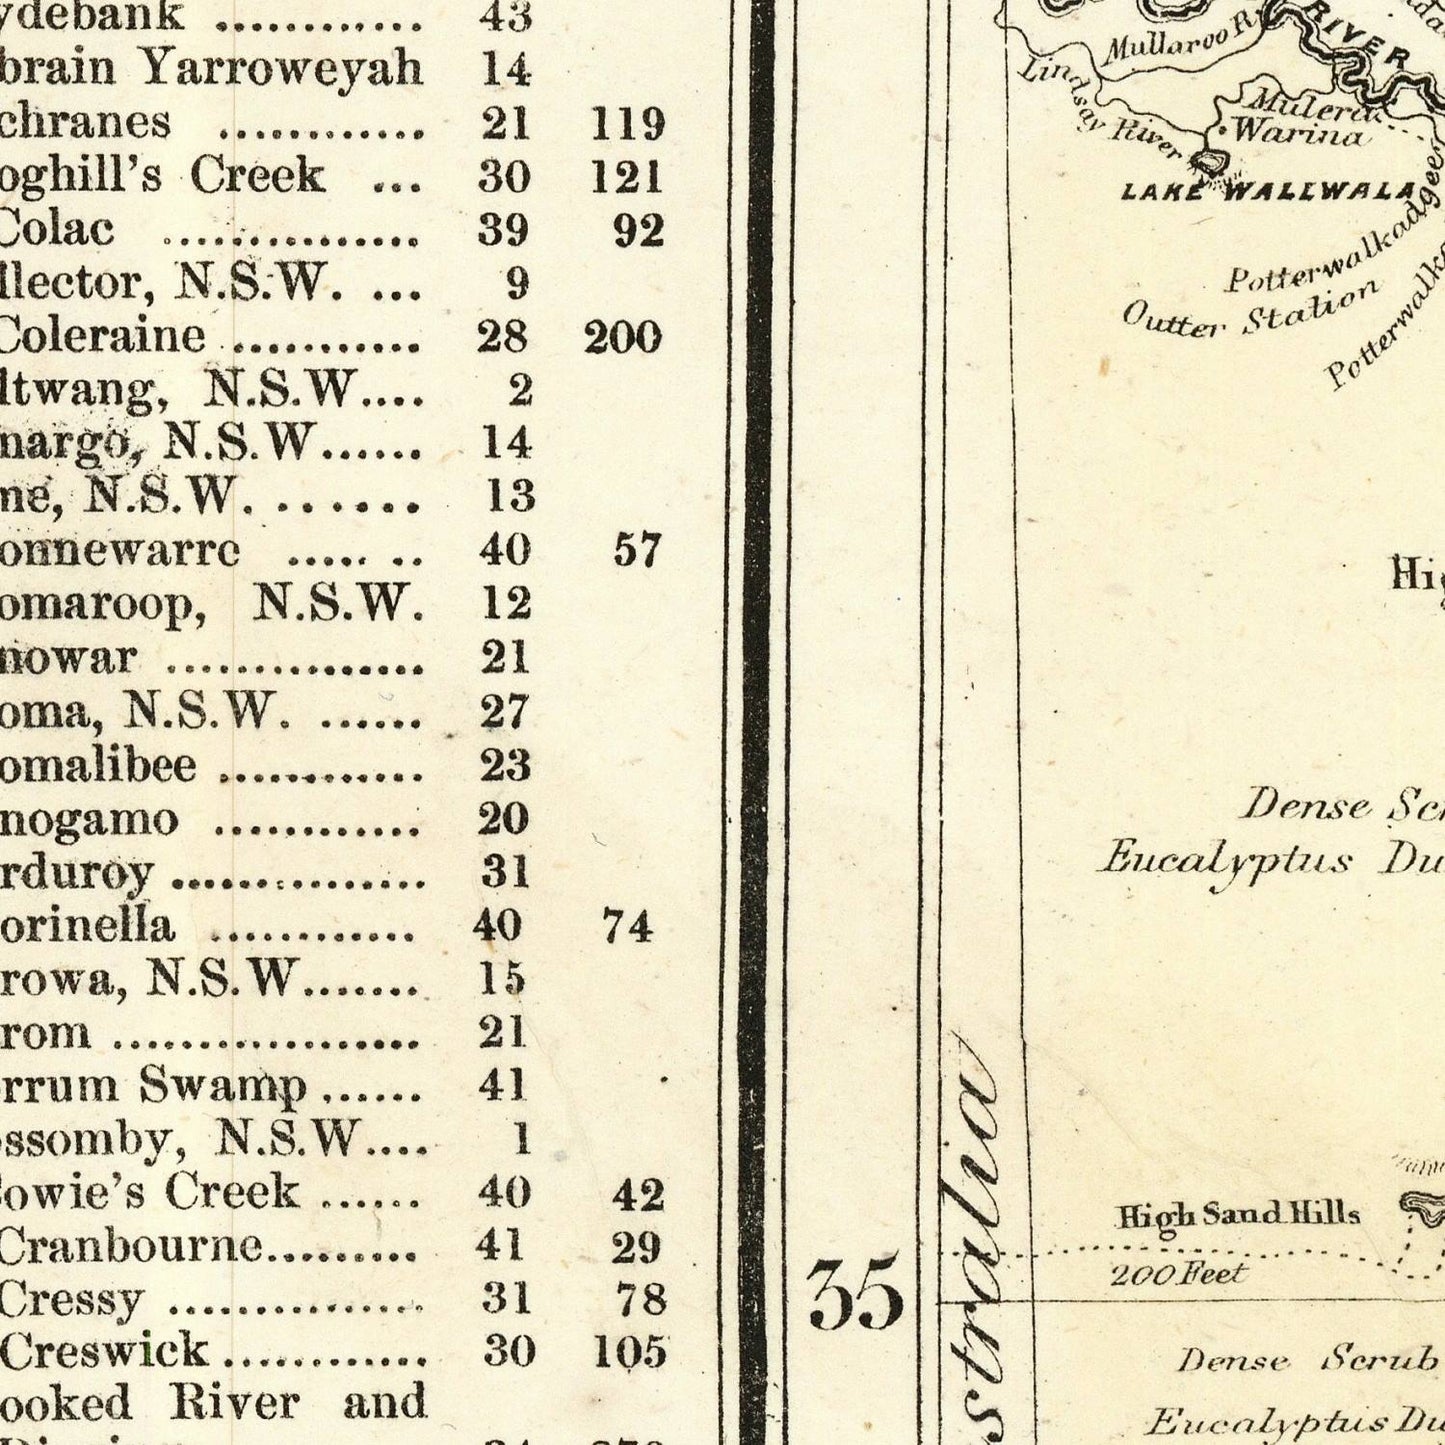 ydebank ............ 43
brain Yarroweyah 14
chranes ............ 21 119
oghill's Creek ... 30 121
Colac ............... 39 92
llector, N.S.W. ... 9
Coleraine ........... 28 200
ltwang, N.S.W.... 2
nargo, N.S.W...... 14
ne, N.S.W. ....... 13
onnewarre ..... .. 40 57
omaroop, N.S.W. 12
nowar ............... 21
oma, N.S.W. ...... 27
omalibee ............ 23
nogamo ............ 20
rduroy ............... 31
orinella ............ 40 74
rowa, N.S.W....... 15
rom .................. 21
orrum Swamp ...... 41
ossomby, N.S.W.... 1
Cowie's Creek ...... 40 42
Cranbourne......... 41 29
Cressy ............... 31 78
Creswick ............ 30 105
ooked River and
35
stralia
RIVER
Mullaroo R.
Lindsay River
Mulera
Warina
LAKE WALLWALA
Potterwalkadgee
Outter Station
Potterwalka
Hig
Dense Scr
Eucalyptus Du
High Sand Hills
200 Feet
Dense Scrub
Eucalyptus Du